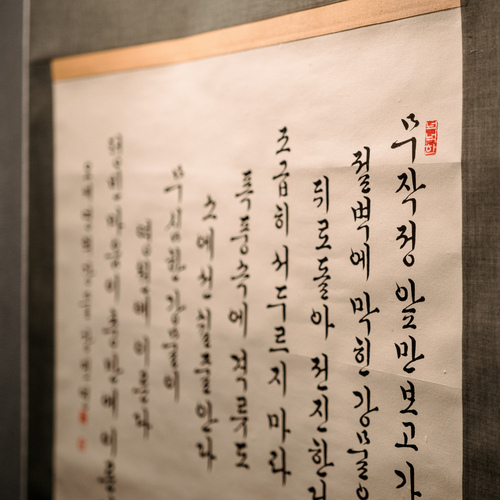 무작정 앞만 보고 가
절벽에 막힌 강물은
뒤로 돌아 전진한다
조급히 서두르지 마라
폭풍 속에 격류도
소에선 쉴 줄 안다
무심한 강물이
영원에 이른다